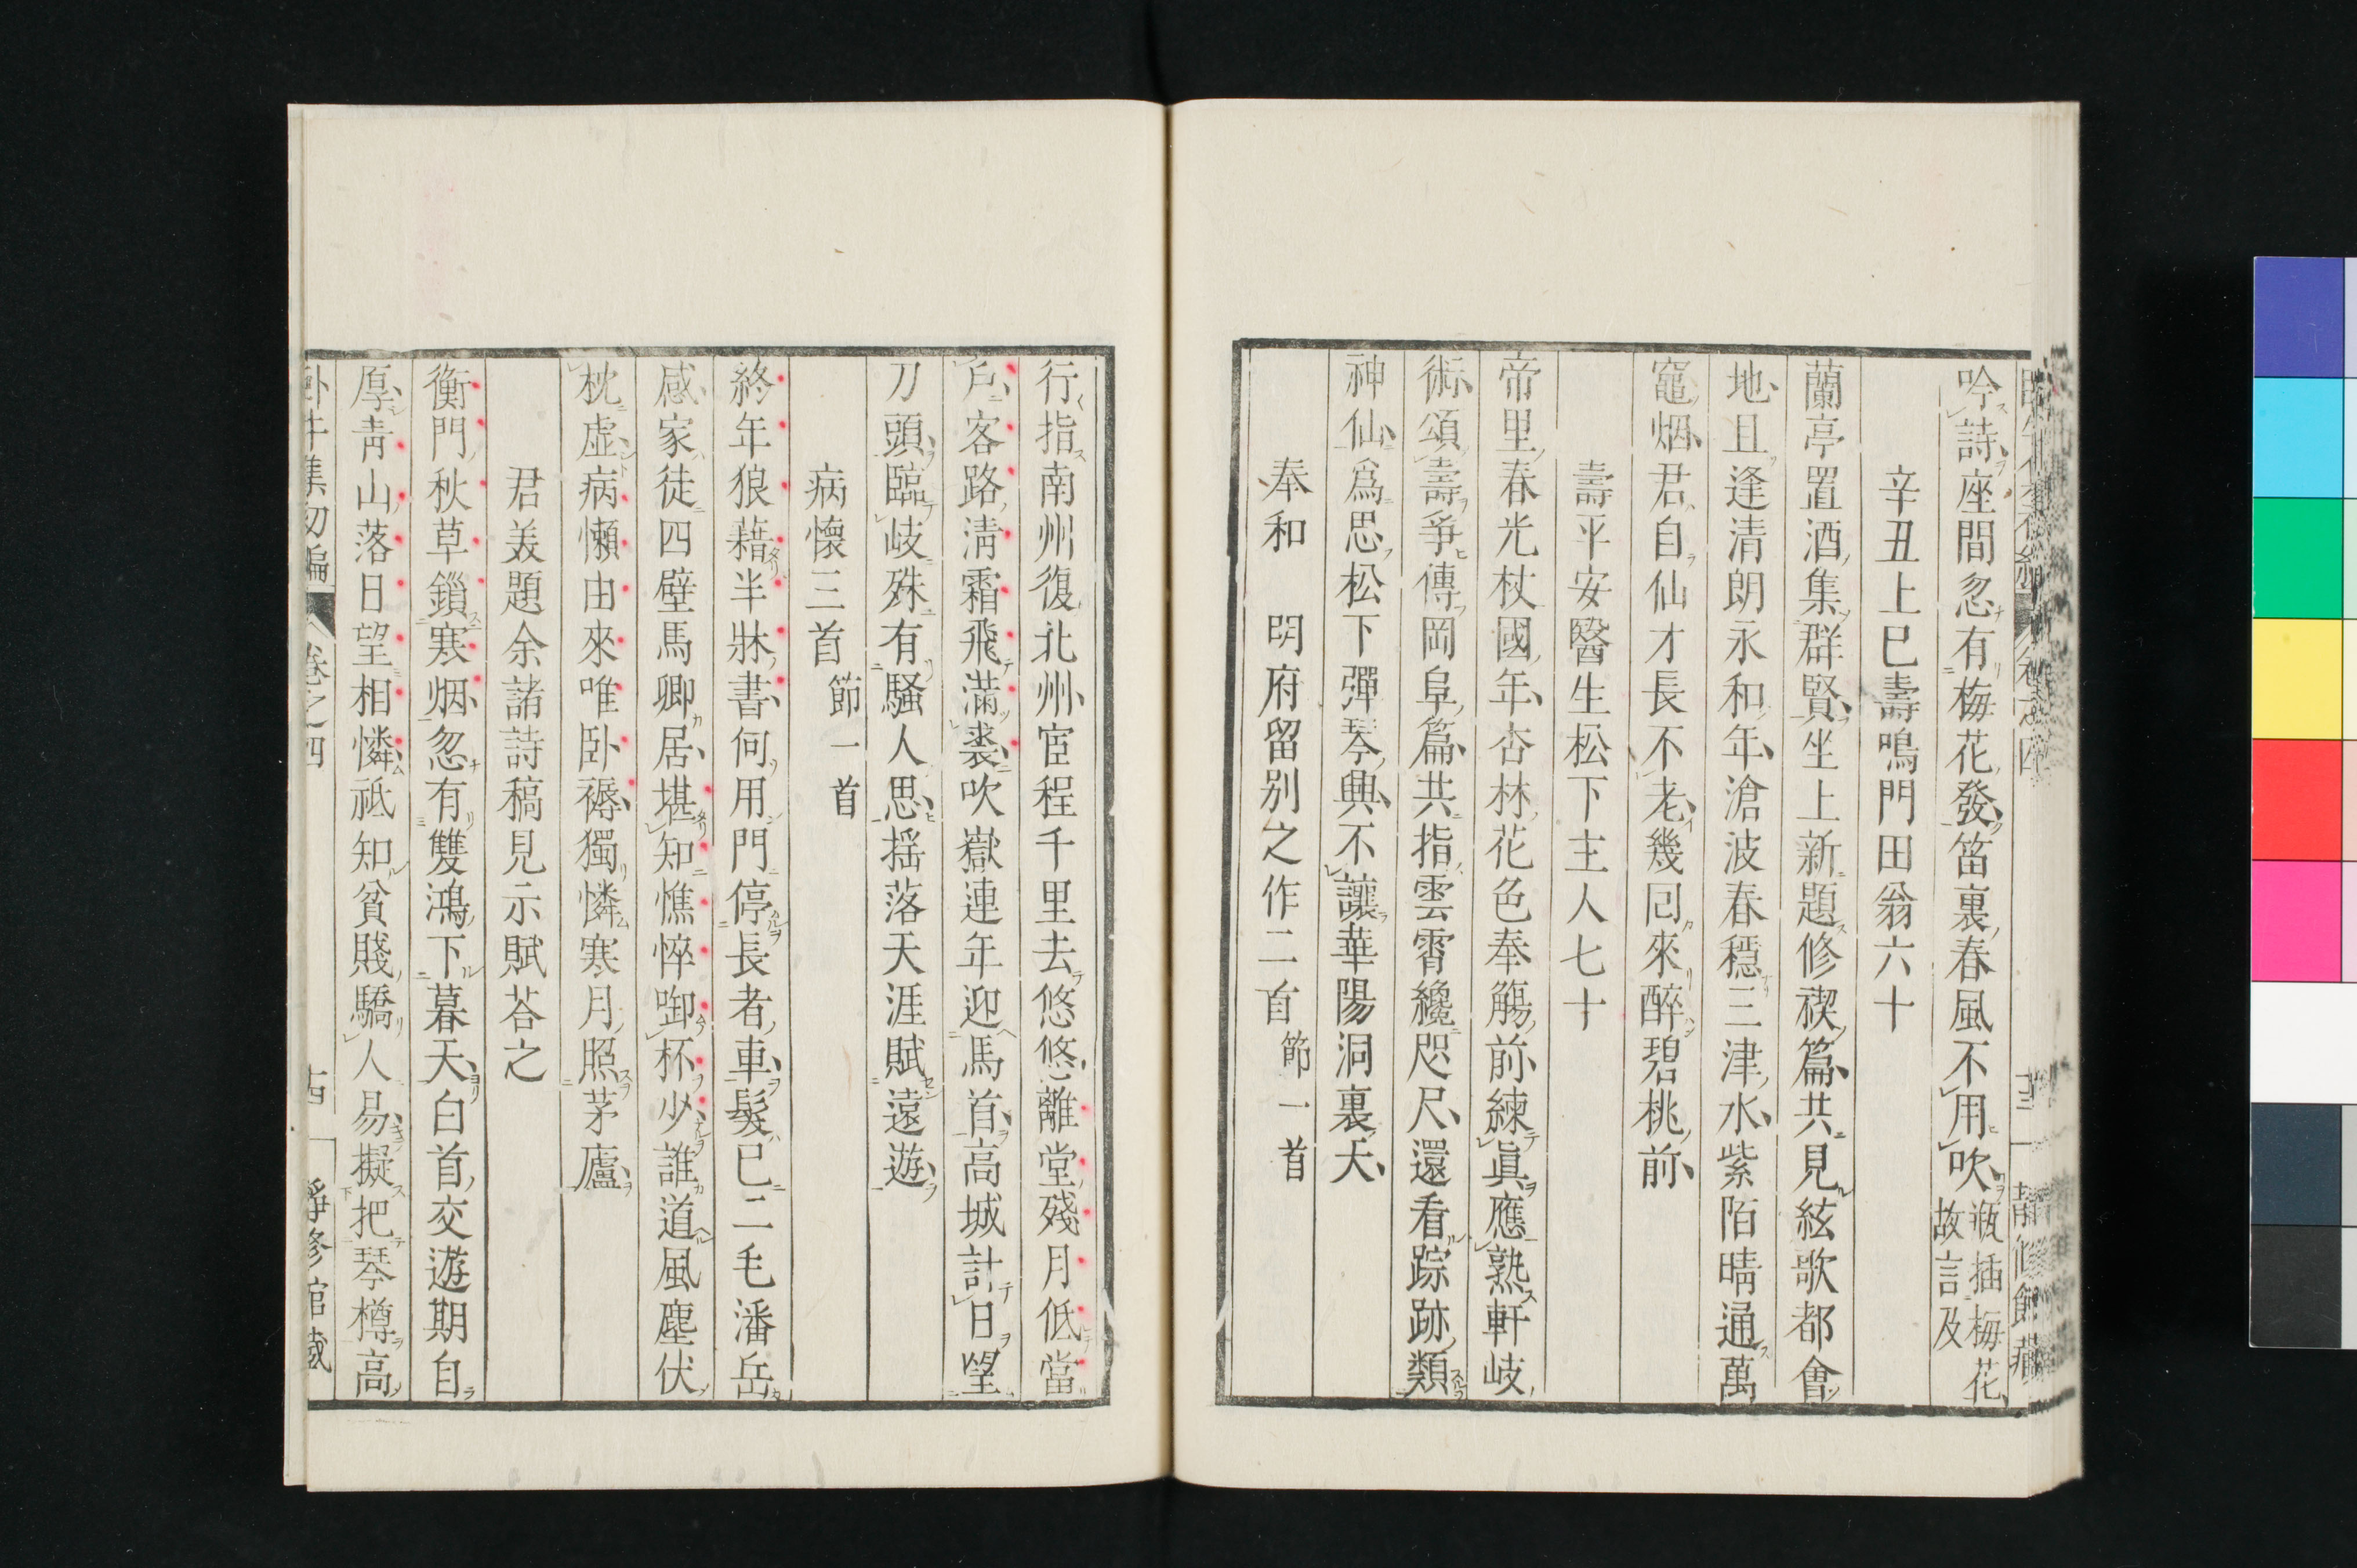 吟詩座間忽有梅花發笛裏春風不用吹瓶插梅花
故言及
辛丑上巳壽鳴門田翁六十
蘭亭置酒集群賢坐上新題修禊篇共見絃歌都會
地且逢清朗永和年滄波春穩三津水紫陌晴通萬
竈烟君自仙才長不老幾回來醉碧桃前
壽平安醫生松下主人七十
帝里春光杖國年杏林花色奉觴前練眞應熟軒岐
術頌壽爭傳岡阜篇共指雲霄纔咫尺還看踪跡類
神仙爲思松下彈琴興不讓華陽洞裏天
奉和 明府留別之作二首節一首
行指南州復北州宦程千里去悠悠離堂殘月低當
戶客路淸霜飛滿裘吹嶽連年迎馬首高城計日望
刀頭臨岐殊有騷人思搖落天涯賦遠遊
病懷三首節一首
終年狼藉半牀書何用門停長者車髮已二毛潘岳
感家徒四壁馬卿居堪知憔悴啣杯少誰道風塵伏
枕虛病懶由來唯臥褥獨憐寒月照茅廬
君美題余諸詩稿見示賦荅之
衡門秋草鎖寒烟忽有雙鴻下暮天白首交遊期自
厚靑山落日望相憐祗知貧賤驕人易擬把琴樽高
臥牛集初編 卷之四 十四 靜修館藏